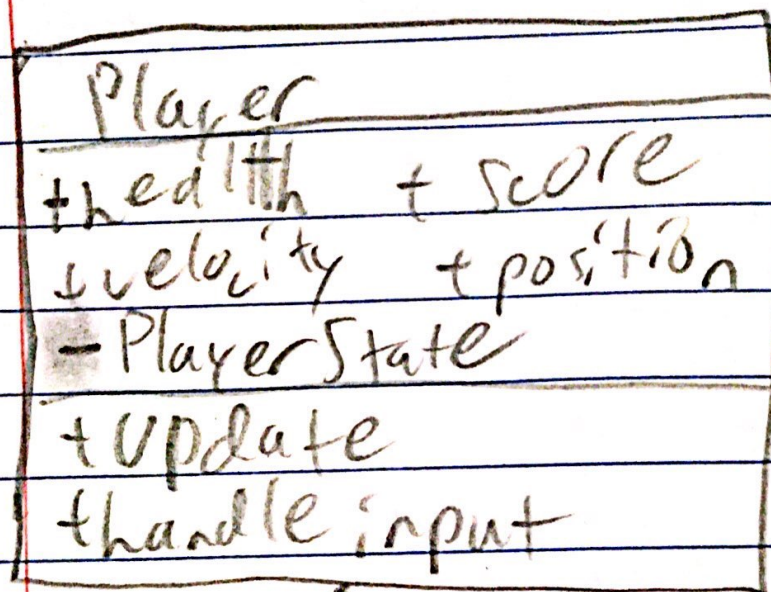 Player
+health +score
+velocity +position
-PlayerState
+update
+handle input